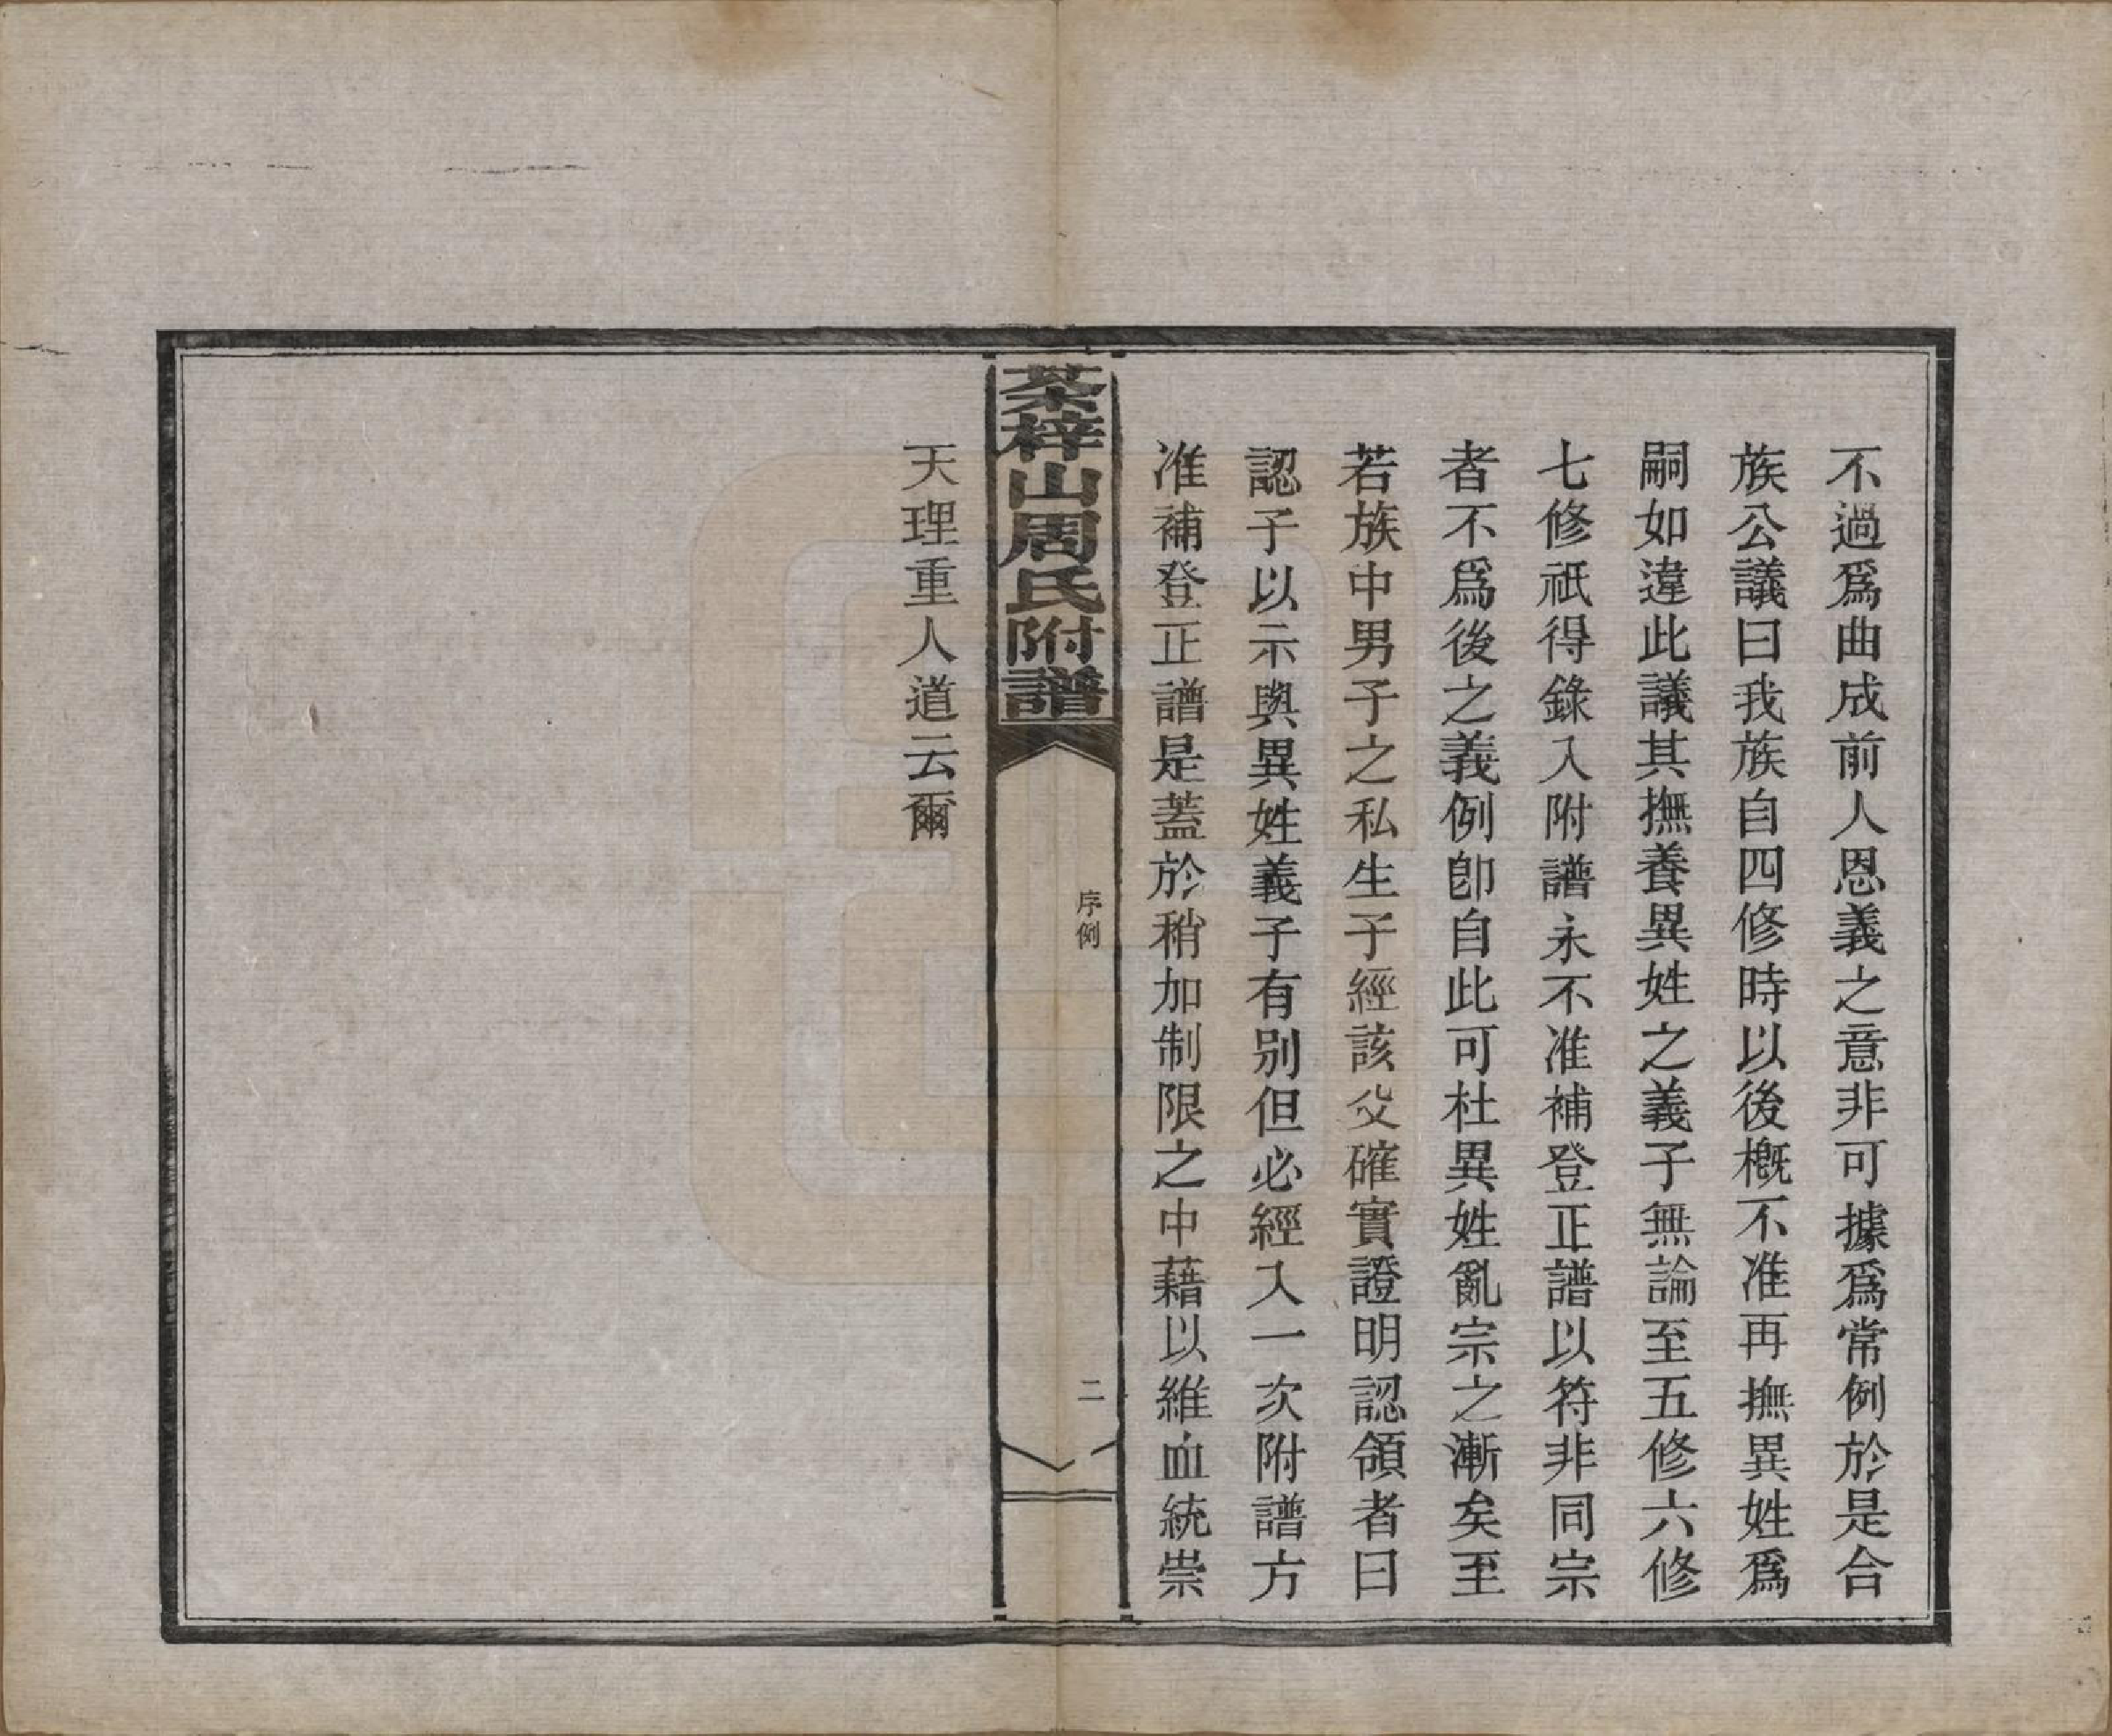 不過爲曲成前人恩義之意非可據爲常例於是合
族公議曰我族自四修時以後槪不准再撫異姓爲
嗣如違此議其撫養異姓之義子無論至五修六修
七修祇得錄入附譜永不准補登正譜以符非同宗
者不爲後之義例卽自此可杜異姓亂宗之漸矣至
若族中男子之私生子經該父確實證明認領者曰
認子以示與異姓義子有别但必經入一次附譜方
准補登正譜是蓋於稍加制限之中藉以維血統崇
茶梓山周氏附譜
序例
二
天理重人道云爾